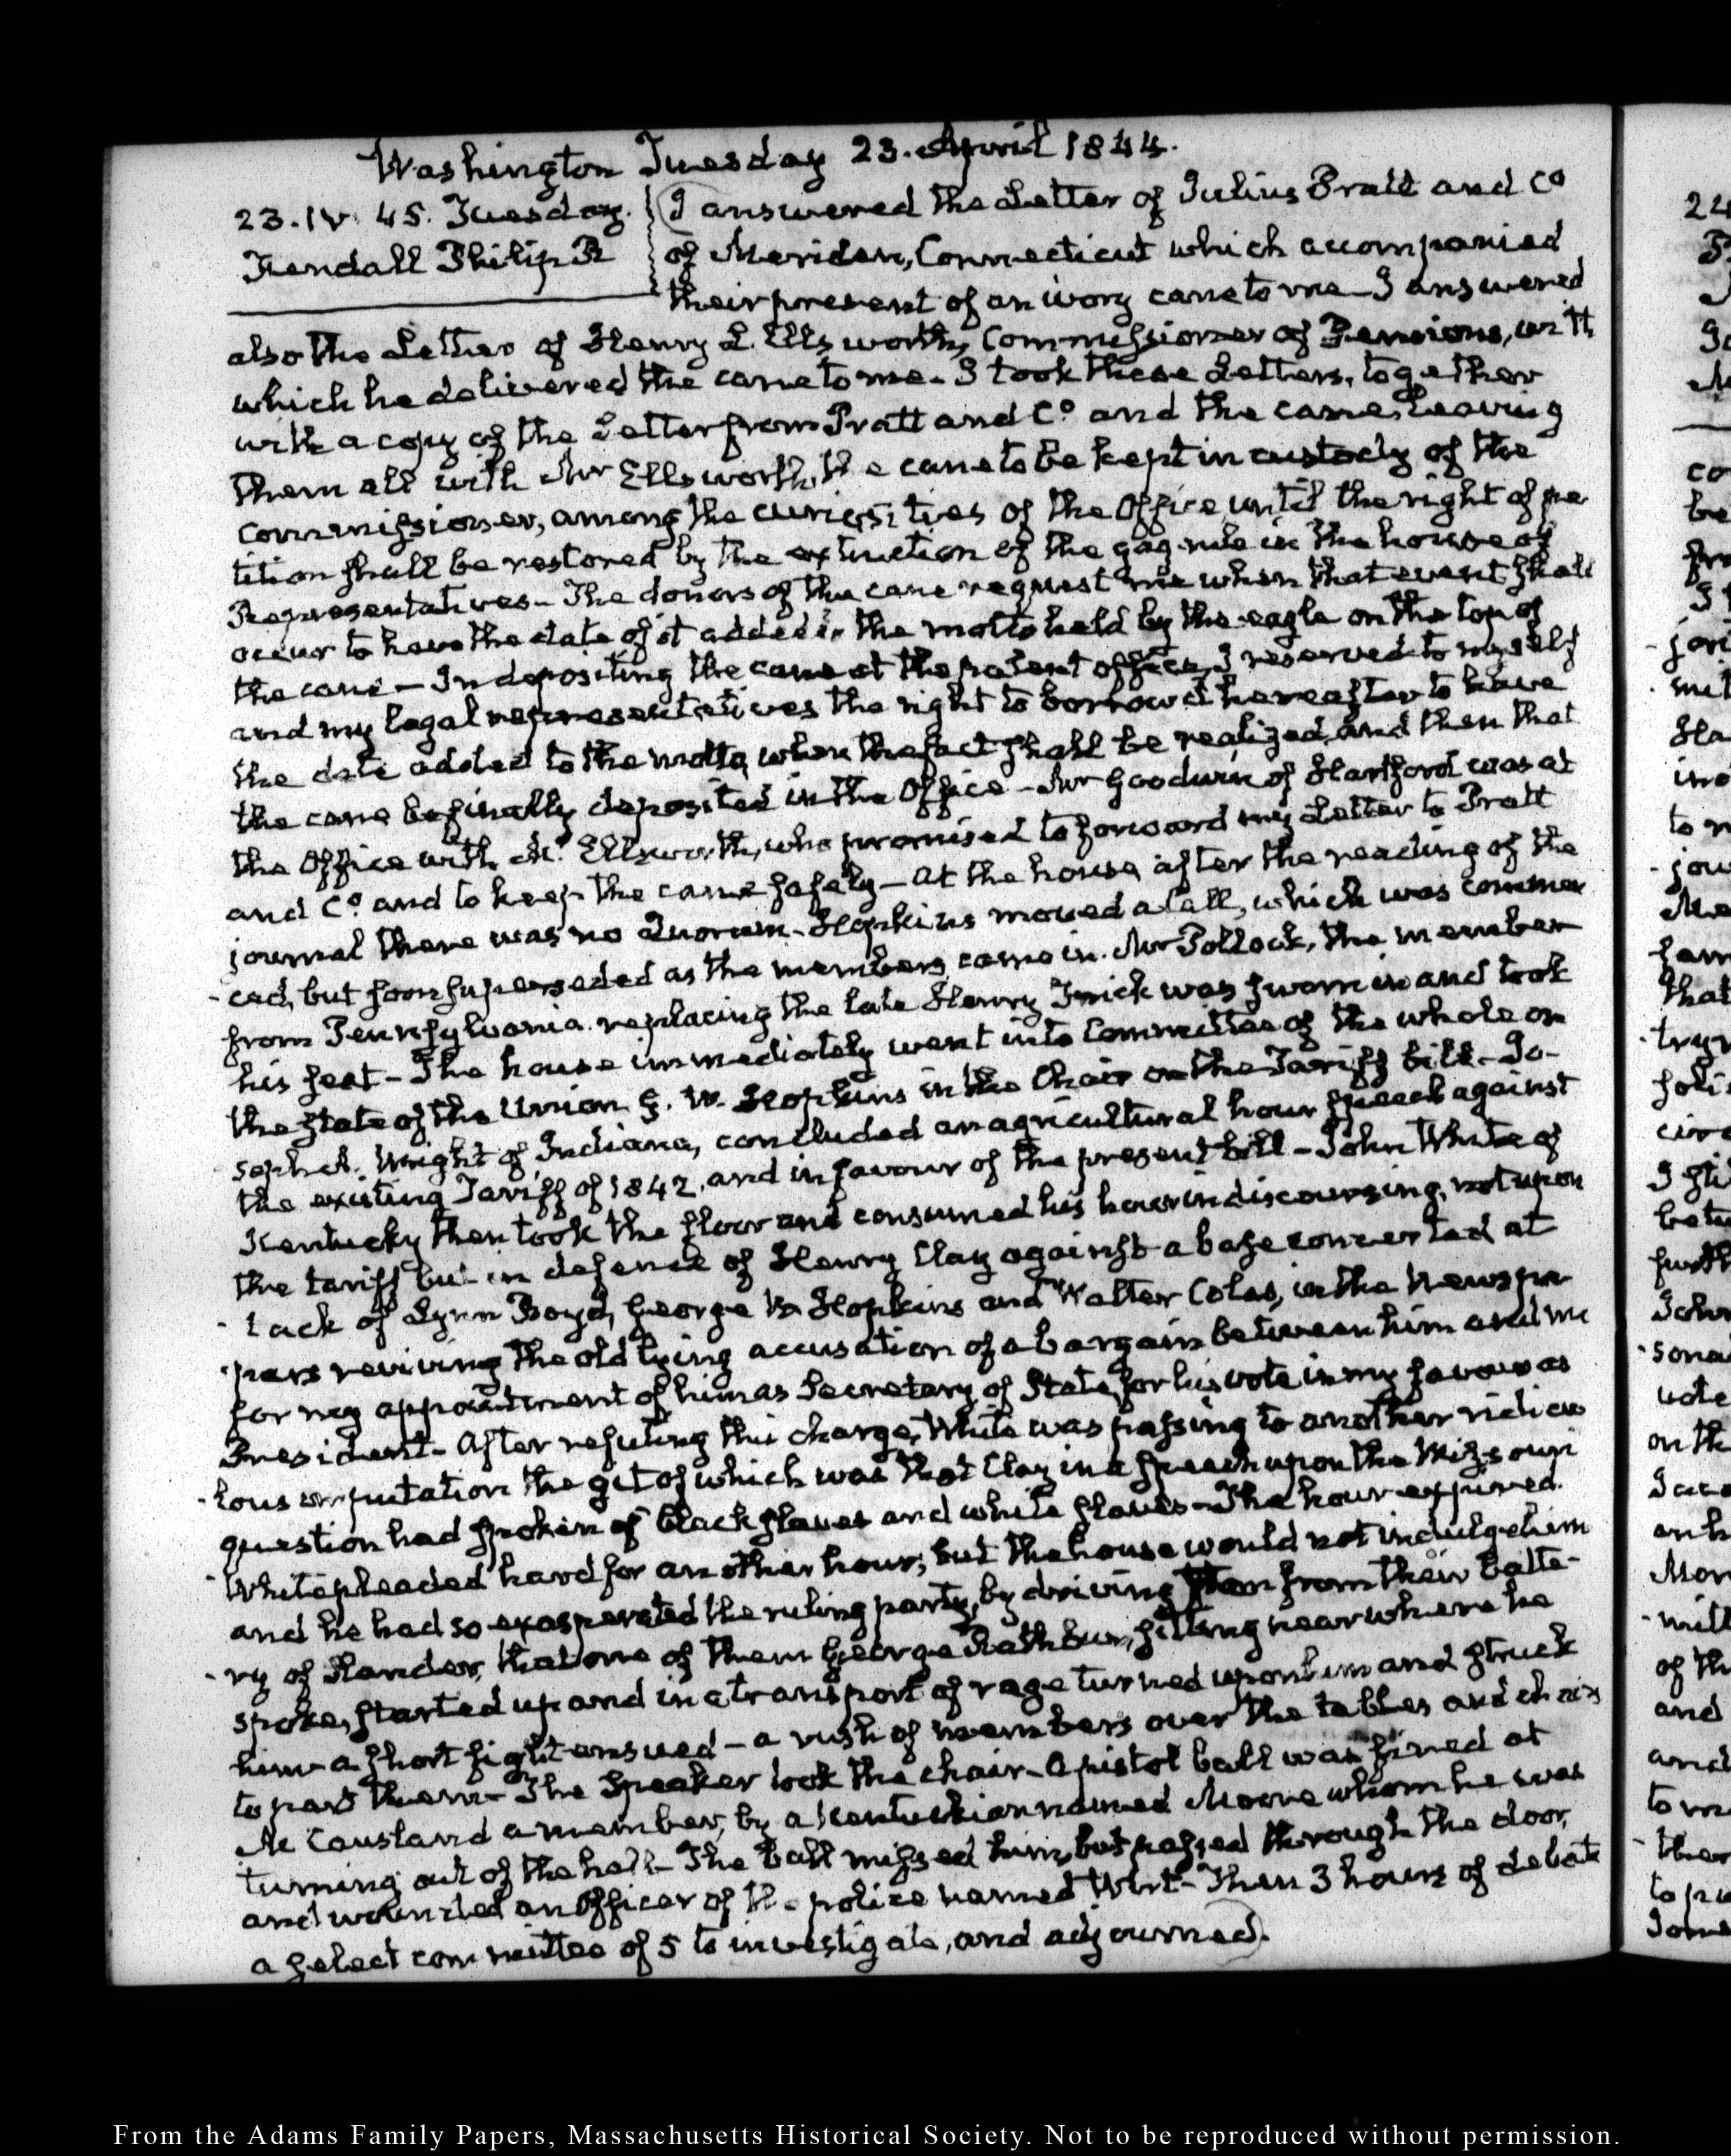 Washington Tuesday 23. April 1844.
23. IV. 45. Tuesday.
Kendall Philip R
I answered the Letter of Julius Pratt and Co
of Meriden, Connecticut which accompanied
their present of an ivory cane to me – I answered
also the Letter of Henry L. Ellsworth, Commissioner of Pensions, with
which he delivered the cane to me – I took these Letters, together
with a copy of the Letter from Pratt and Co and the cane, leaving
them all with Mr Ellsworth, the cane to be kept in custody of the
Commissioner, among the curiosities of the Office until the right of pe
tition shall be restored by the extinction of the gag-rule in the house of
Representatives – The donors of the cane request me when that event shall
occur to have the date of it added in the motto held by the eagle on the top of
the cane – In depositing the cane at the patent office, I reserved to myself
and my legal representatives the right to borrow it hereafter to have
the date added to the motto, when the fact shall be realized, and then that
the cane be finally deposited in the Office – Mr Goodwin of Hartford was at
the Office with Mr Ellsworth, who promised to forward my Letter to Pratt
and Co and to keep the cane safely – At the house, after the reading of the
journal there was no Quorum – Hopkins moved a Call, which was commen
-ced, but soon superseded as the members came in. Mr Pollock, the member
from Pennsylvania replacing the late Henry Frick was sworn in and took
his seat – The house immediately went into Committee of the whole on
the state of the Union G. W. Hopkins in the Chair on the Tariff bill – Jo-
seph A. Wright of Indiana, concluded an agricultural hour speech against
the existing Tariff of 1842, and in favour of the present bill – John White of
Kentucky then took the floor and consumed his hour in discoursing, not upon
the tariff but in defence of Henry Clay against a base concerted at
- tack of Lynn Boyd, George W. Hopkins and Walter Coles, in the Newspa
- pers reviving the old lying accusation of a bargain between him and me
for my appointment of him as Secretary of State, for his vote in my favour as
President – After refuting this charge, White was passing to another ridicu
- lous imputation the gist of which was that Clay in a speech upon the Missouri
question had spoken of black slaves and white slaves – The hour expired.
White pleaded hard for another hour; but the house would not indulge him
and he had so exasperated the ruling party, by driving them from their batte-
- ry of slander, that one of them George Rathbun, sitting near where he
spoke, started up and in a transport of rage turned upon him and struck
him – a short fight ensued – a rush of members over the tables and chairs
to part them – The Speaker took the chair – A pistol ball was fired at
Mc Causland a member, by a Kentuckian named Moore whom he was
turning out of the hall – The ball missed him, but passed through the door,
and wounded an Officer of the police named Wirt – Then 3 hours of debate
a select committee of 5 to investigate, and adjourned.
From the Adams Family Papers, Massachusetts Historical Society. Not to be reproduced without permission.